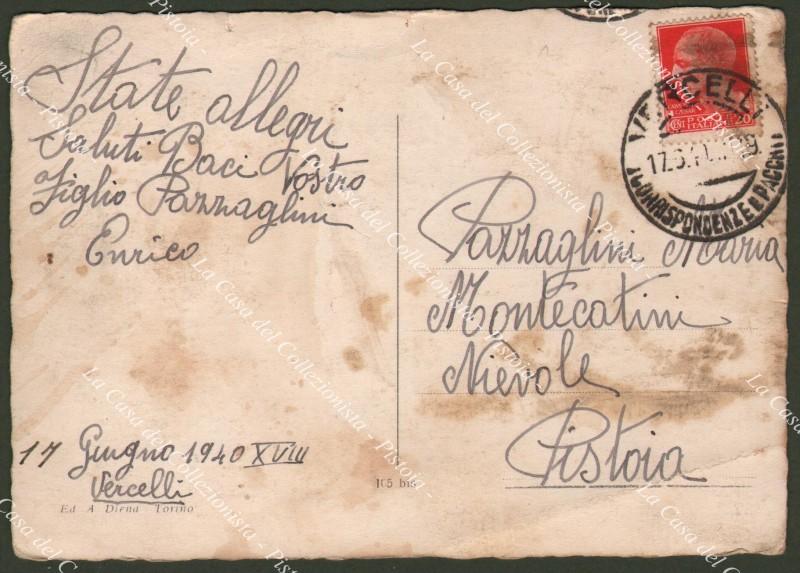 State allegri
Saluti Baci Vostro
Figlio Pazzaglini
Enrico
17 Giugno 1940 XVIII
Vercelli
Ed A Diena Torino
105 bis
VERCELLI
CORRISPONDENZE E PACCHI
20
Pazzaglini Maria
Montecatini
Nievole
Pistoia
La Casa del Collezionista - Pistoia -